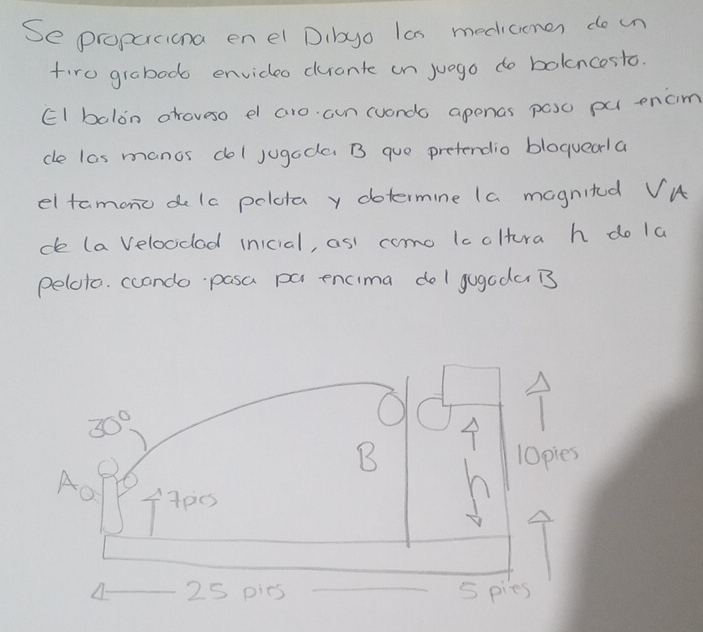 Se proporciona en el Dibujo las mediciones de un
tiro grabado en video durante un juego de baloncesto.
El balón atraveso el aro aun cuando apenas paso por encim
de las manos del jugador B que pretendio bloquearla
el tamaño de la pelota y determine la magnitud VA
de la Velocidad inicial, así como la altura h de la
pelota. cuando pasa por encima del jugador B
30°
A
7pies
B
h
10pies
25 pies
5 pies